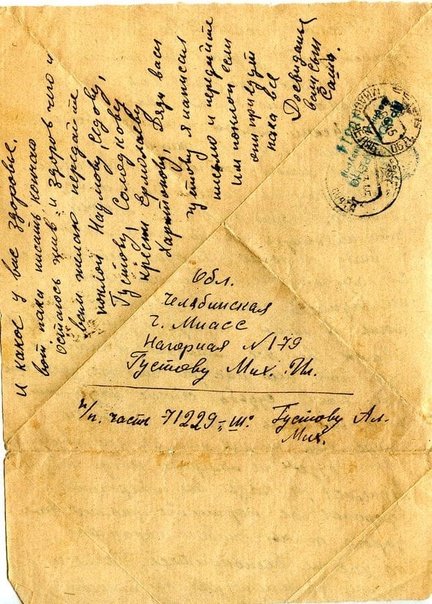 и какое у вас здоровье.
вой пока писать кончаю
остаюсь жив и здоров чего и
вам желаю передайте
поклон Наумову, Седову,
Густову, Солодкову
крёсн. Ермолаеву
Харитонову, Дяди васи
густову я написал
письмо и передайте
им поклон если
они придут
пока все
Досвидания
ваш сын
Саша.
Обл.
Челябинская
г. Миасс
Нагорная N 179
Густову Мих. Ил.
п/п. часть 71229 "Ш" Густову Ал.
Мих.